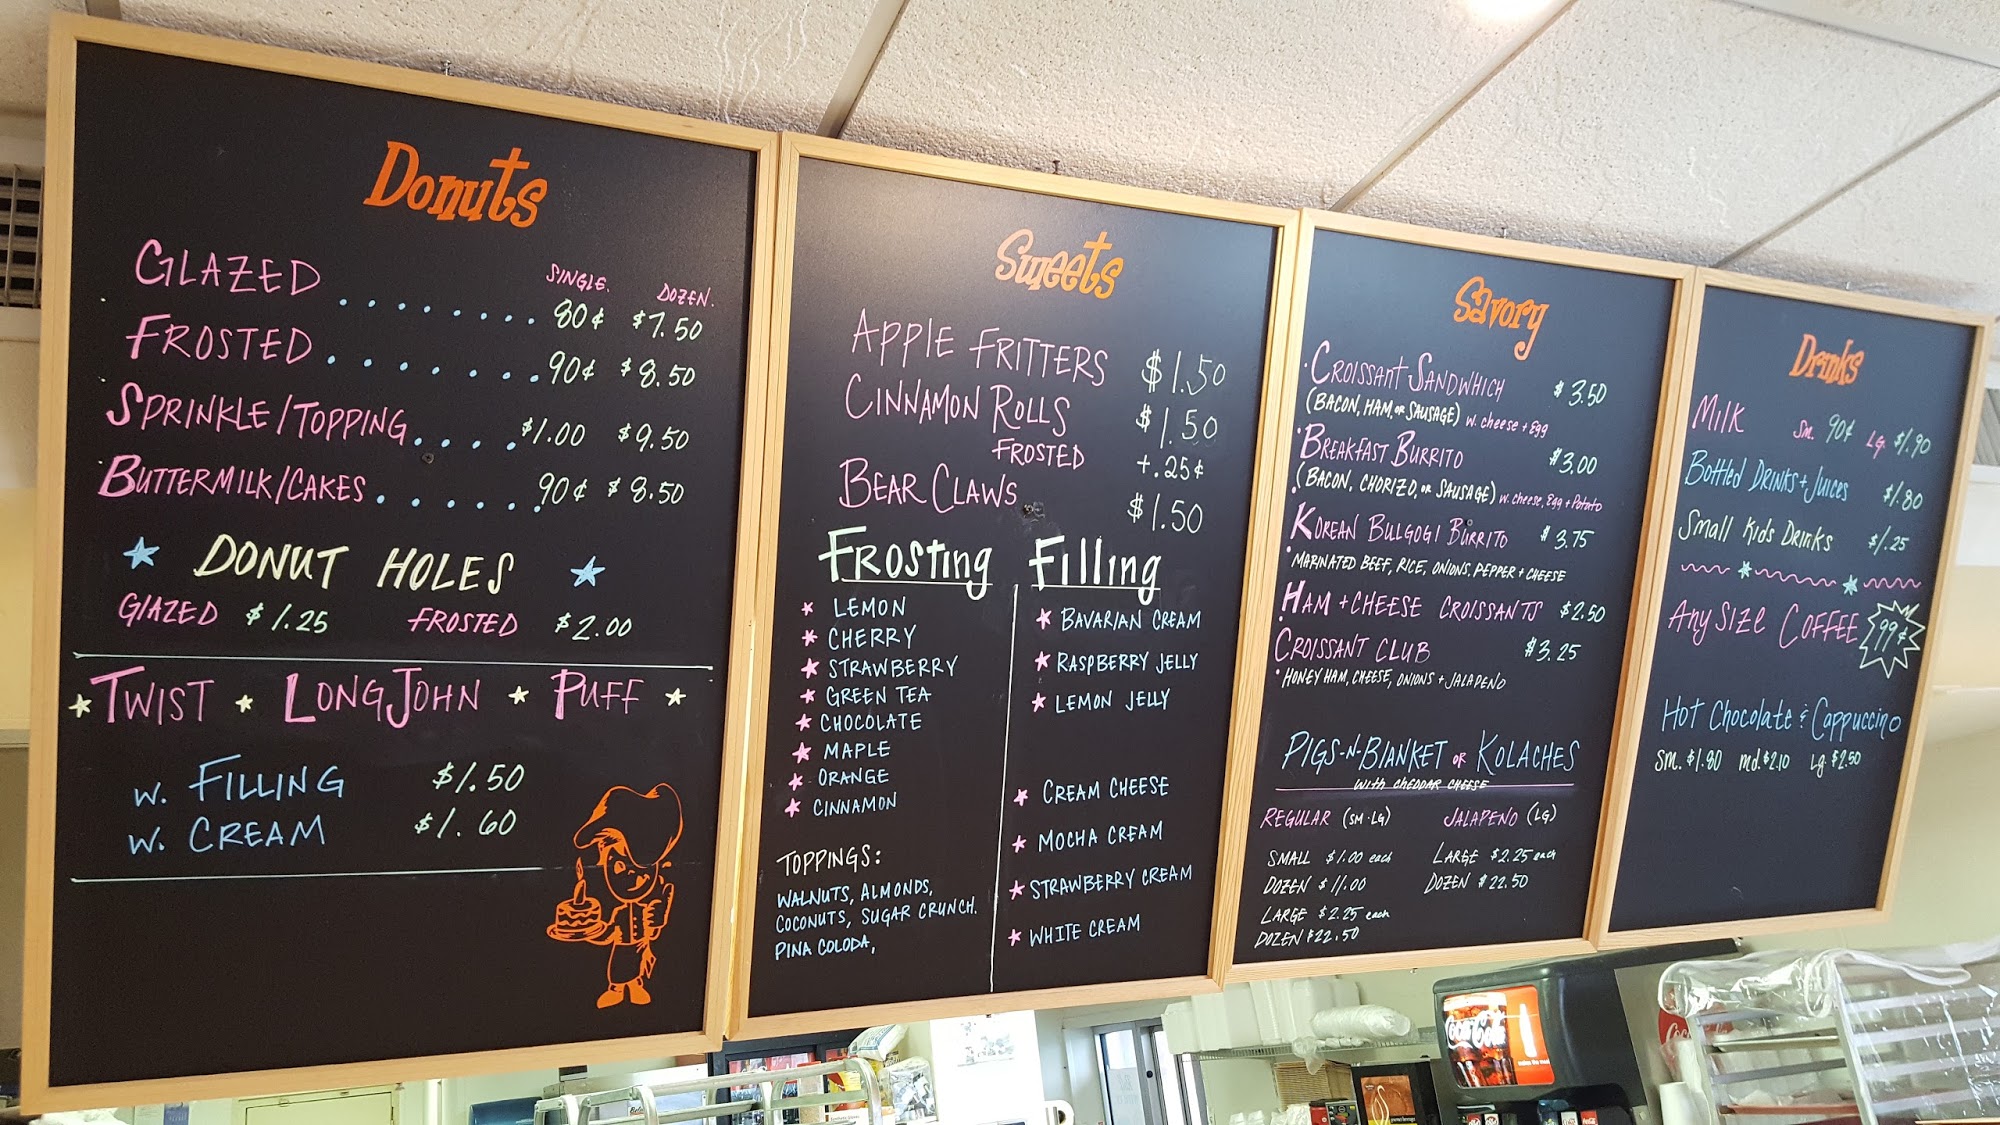 Donuts
SINGLE. DOZEN.
GLAZED ........ 80¢ $7.50
FROSTED ........ 90¢ $8.50
SPRINKLE/TOPPING .... $1.00 $9.50
BUTTERMILK/CAKES ...... 90¢ $8.50
DONUT HOLES
GLAZED $1.25 FROSTED $2.00
TWIST LONG JOHN PUFF
w. FILLING $1.50
w. CREAM $1.60
Sweets
APPLE FRITTERS $1.50
CINNAMON ROLLS $1.50
FROSTED +.25¢
BEAR CLAWS $1.50
FROSTING
LEMON
CHERRY
STRAWBERRY
GREEN TEA
CHOCOLATE
MAPLE
ORANGE
CINNAMON
TOPPINGS:
WALNUTS, ALMONDS,
COCONUTS, SUGAR CRUNCH.
PINA COLODA,
FILLING
BAVARIAN CREAM
RASPBERRY JELLY
LEMON JELLY
CREAM CHEESE
MOCHA CREAM
STRAWBERRY CREAM
WHITE CREAM
Savory
CROISSANT SANDWHICH $3.50
(BACON, HAM, OR SAUSAGE) w. cheese + Egg
BREAKFAST BURRITO $3.00
(BACON, CHORIZO, OR SAUSAGE) w. cheese, Egg + Potato
KOREAN BULGOGI BURRITO $3.75
MARINATED BEEF, RICE, ONIONS, PEPPER + CHEESE
HAM + CHEESE CROISSANTS $2.50
CROISSANT CLUB $3.25
HONEY HAM, CHEESE, ONIONS + JALAPENO
PIGS-N-BLANKET OR KOLACHES
WITH CHEDDAR CHEESE
REGULAR (SM·LG)
SMALL $1.00 each
DOZEN $11.00
LARGE $2.25 each
DOZEN $22.50
JALAPENO (LG)
LARGE $2.25 each
DOZEN $22.50
Drinks
MILK Sm. 90¢ LG. $1.90
Bottled DRINKS + JUICES $1.80
Small Kids Drinks $1.25
Any SIZE COFFEE 99¢
Hot Chocolate & Cappuccino
Sm. $1.80 md. $2.10 Lg. $2.50
Coca-Cola